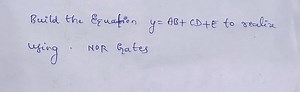 Build the Equation y= AB+ CD+E to realize
using . NOR Gates